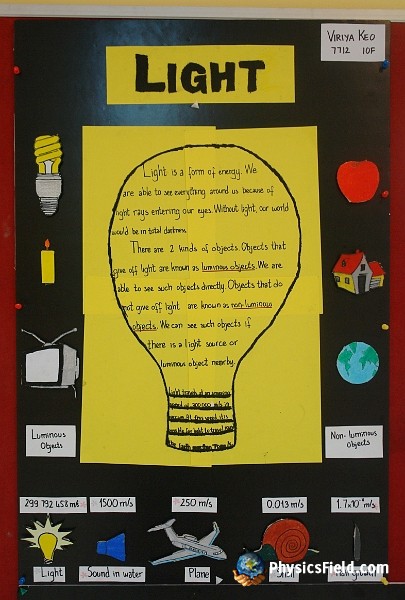 VIRIYA KEO
7712 10F
LIGHT
Light is a form of energy. We
are able to see everything around us because of
light rays entering our eyes. Without light, our world
would be in total darkness.
There are 2 kinds of objects. Objects that
give off light are known as luminous objects. We are
able to see such objects directly. Objects that do
not give off light are known as non-luminous
objects. We can see such objects if
there is a light source or
luminous object nearby.
Light travels at an
speed of 300 000
Luminous
Objects
Non-luminous
Objects
299 792 458 m/s
1500 m/s
250 m/s
0.013 m/s
Light
Sound in water
Plane
PhysicsField.com